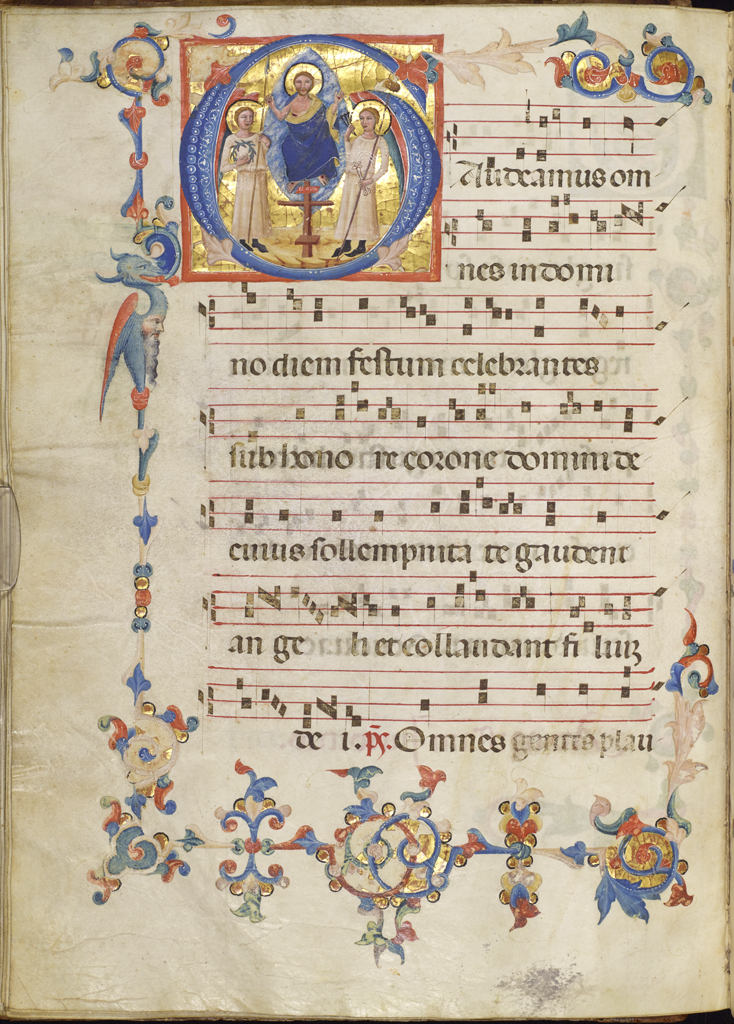 Gaudeamus om
nes in domi
no diem festum celebrantes
sub hono re corone domini de
cuius sollempnita te gaudent
an ge li et collaudant fi lium
de i. ps. Omnes gentes plau